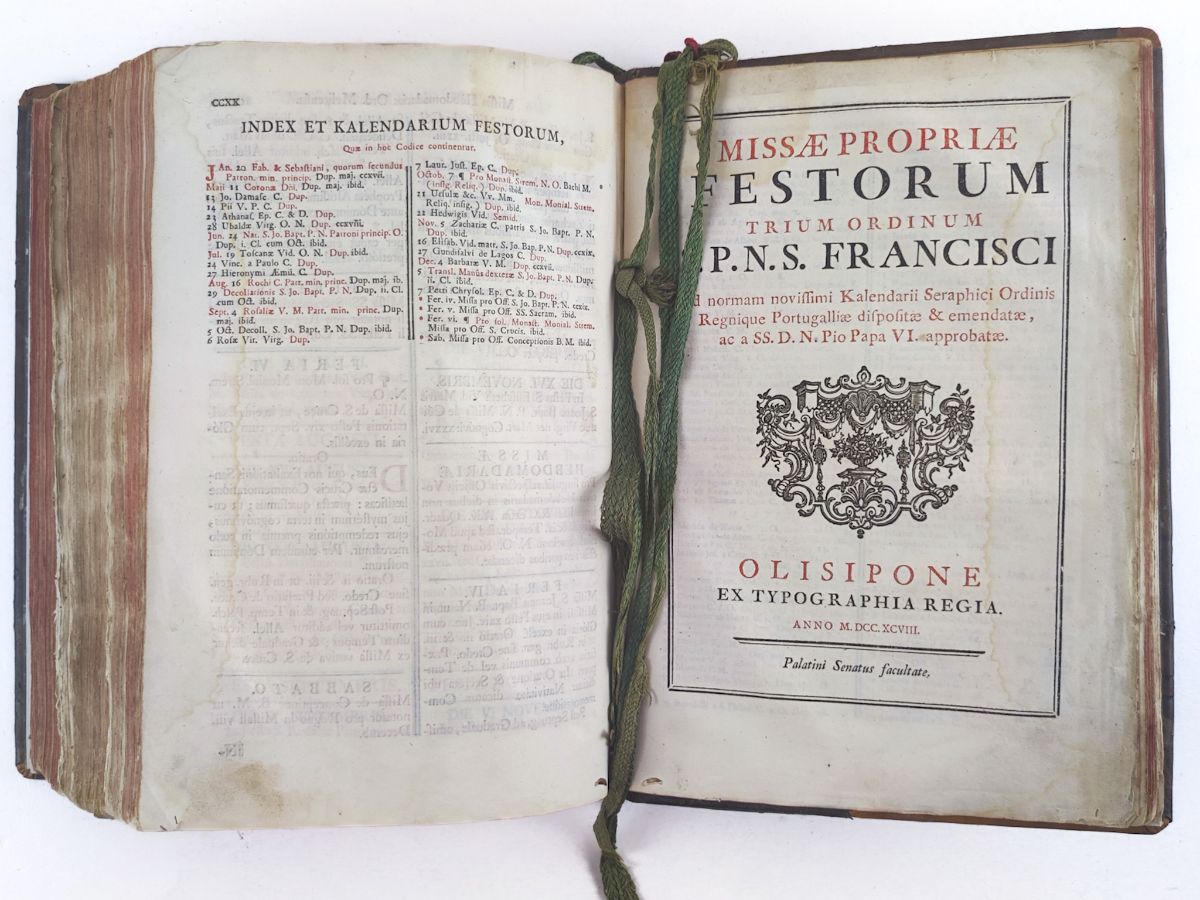 CCXX
INDEX ET KALENDARIUM FESTORUM,
Quæ in hoc Codice continentur.
JAn. 20 Fab. & Sebastiani, quorum secundus
Patron. min. princip. Dup. maj. ccxvii.
Maii 11 Coronæ Dñi. Dup. maj. ibid.
13 Jo. Damasc C. Dup.
14 Pii V. P. C. Dup.
23 Athanas, Ep. C. & D. Dup.
28 Ubaldæ Virg. O. N. Dup. ccxviii.
Jun. 24 Nat. S. Jo. Bapt. P. N. Patroni princip. O.
Dup. i. Cl. cum Oct. ibid.
Jul. 19 Toscanæ Vid. O. N. Dup. ibid.
24 Vinc. a Paulo C. Dup.
27 Hieronymi Æmil. C. Dup.
Aug. 16 Rochi C. Patr. min. princ. Dup. maj. ib.
29 Decollationis S. Jo. Bapt. P. N. Dup. ii. Cl.
cum Oct. ibid.
Sept. 4 Rosaliæ V. M. Patr. min. princ. Dup.
maj. ibid.
5 Oct. Decoll. S. Jo. Bapt. P. N. Dup. ibid.
6 Rosæ Vit. Virg. Dup.
7 Laur. Just. Ep. C. Dup.
Octob. 7 ¶ Pro Monast. Strem. N. O. Bachi M.
(insig. Reliq.) Dup. ibid.
21 Ursulæ &c. Vv. Mm. Mon. Monial. Strem.
Reliq. insig.) Dup. ibid.
22 Hedwigis Vid. Semid.
Nov. 5 Zachariæ C. patris S. Jo. Bapt. P. N.
Dup. ibid.
16 Elisab. Vid. matr. S. Jo. Bap. P. N. Dup. ccxix.
27 Gundisalvi de Lagos C. Dup.
Dec. 4 Barbaræ V. M. Dup. ccxvii.
5 Transl. Manûs dexteræ S. Jo. Bapt. P. N. Dup.
ii. Cl. ibid.
7 Petri Chrysol. Ep. C. & D. Dup.
* Fer. iv. Missa pro Off. S. Jo. Bapt. P. N. ccxix.
* Fer. v. Missa pro Off. SS. Sacram. ibid.
* Fer. vi. ¶ Pro sol. Monast. Monial. Strem.
Missa pro Off. S. Crucis. ibid.
* Sab. Missa pro Off. Conceptionis B. M. ibid.
MISSÆ PROPRIÆ
FESTORUM
TRIUM ORDINUM
P. N. S. FRANCISCI
normam novissimi Kalendarii Seraphici Ordinis
Regnique Portugalliæ dispositæ & emendatæ,
ac a SS. D. N. Pio Papa VI. approbatæ.
OLISIPONE
EX TYPOGRAPHIA REGIA.
ANNO M. DCC. XCVIII.
Palatini Senatus facultate,